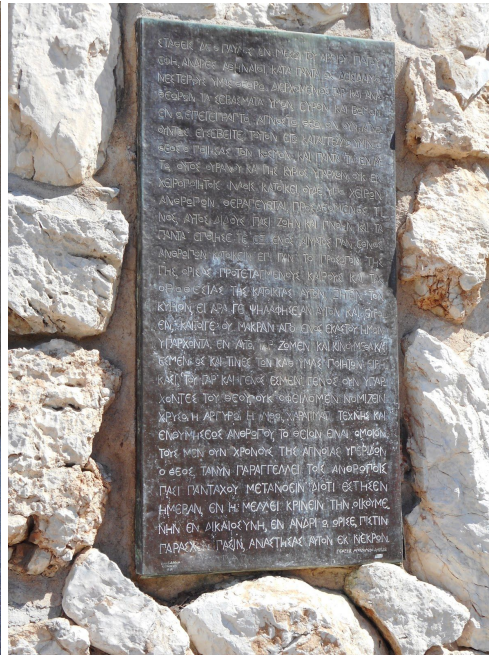 ΣΤΑΘΕΙΣ ΔΕ Ο ΠΑΥΛΟΣ ΕΝ ΜΕΣΩ ΤΟΥ ΑΡΕΙΟΥ ΠΑΓΟΥ
ΕΦΗ, ΑΝΔΡΕΣ ΑΘΗΝΑΙΟΙ, ΚΑΤΑ ΠΑΝΤΑ ΩΣ ΔΕΙΣΙΔΑΙΜΟ
ΝΕΣΤΕΡΟΥΣ ΥΜΑΣ ΘΕΩΡΩ. ΔΙΕΡΧΟΜΕΝΟΣ ΓΑΡ ΚΑΙ ΑΝΑ
ΘΕΩΡΩΝ ΤΑ ΣΕΒΑΣΜΑΤΑ ΥΜΩΝ ΕΥΡΟΝ ΚΑΙ ΒΩΜΟΝ
ΕΝ Ω ΕΠΕΓΕΓΡΑΠΤΟ, ΑΓΝΩΣΤΩ ΘΕΩ. ΟΝ ΟΥΝ ΑΓΝΟ
ΟΥΝΤΕΣ ΕΥΣΕΒΕΙΤΕ, ΤΟΥΤΟΝ ΕΓΩ ΚΑΤΑΓΓΕΛΛΩ ΥΜΙΝ. Ο
ΘΕΟΣ Ο ΠΟΙΗΣΑΣ ΤΟΝ ΚΟΣΜΟΝ ΚΑΙ ΠΑΝΤΑ ΤΑ ΕΝ ΑΥ
ΤΩ, ΟΥΤΟΣ ΟΥΡΑΝΟΥ ΚΑΙ ΓΗΣ ΚΥΡΙΟΣ ΥΠΑΡΧΩΝ ΟΥΚ ΕΝ
ΧΕΙΡΟΠΟΙΗΤΟΙΣ ΝΑΟΙΣ ΚΑΤΟΙΚΕΙ ΟΥΔΕ ΥΠΟ ΧΕΙΡΩΝ
ΑΝΘΡΩΠΩΝ ΘΕΡΑΠΕΥΕΤΑΙ ΠΡΟΣΔΕΟΜΕΝΟΣ ΤΙ
ΝΟΣ, ΑΥΤΟΣ ΔΙΔΟΥΣ ΠΑΣΙ ΖΩΗΝ ΚΑΙ ΠΝΟΗΝ ΚΑΙ ΤΑ
ΠΑΝΤΑ ΕΠΟΙΗΣΕ ΤΕ ΕΞ ΕΝΟΣ ΑΙΜΑΤΟΣ ΠΑΝ ΕΘΝΟΣ
ΑΝΘΡΩΠΩΝ ΚΑΤΟΙΚΕΙΝ ΕΠΙ ΠΑΝ ΤΟ ΠΡΟΣΩΠΟΝ ΤΗΣ
ΓΗΣ, ΟΡΙΣΑΣ ΠΡΟΤΕΤΑΓΜΕΝΟΥΣ ΚΑΙΡΟΥΣ ΚΑΙ ΤΑΣ
ΟΡΟΘΕΣΙΑΣ ΤΗΣ ΚΑΤΟΙΚΙΑΣ ΑΥΤΩΝ, ΖΗΤΕΙΝ ΤΟΝ
ΚΥΡΙΟΝ, ΕΙ ΑΡΑ ΓΕ ΨΗΛΑΦΗΣΕΙΑΝ ΑΥΤΟΝ ΚΑΙ ΕΥΡΟΙ
ΕΝ, ΚΑΙΤΟΙΓΕ ΟΥ ΜΑΚΡΑΝ ΑΠΟ ΕΝΟΣ ΕΚΑΣΤΟΥ ΗΜΩΝ
ΥΠΑΡΧΟΝΤΑ, ΕΝ ΑΥΤΩ ΓΑΡ ΖΩΜΕΝ ΚΑΙ ΚΙΝΟΥΜΕΘΑ ΚΑΙ
ΕΣΜΕΝ, ΩΣ ΚΑΙ ΤΙΝΕΣ ΤΩΝ ΚΑΘ' ΥΜΑΣ ΠΟΙΗΤΩΝ ΕΙΡΗ
ΚΑΣΙ, ΤΟΥ ΓΑΡ ΚΑΙ ΓΕΝΟΣ ΕΣΜΕΝ. ΓΕΝΟΣ ΟΥΝ ΥΠΑΡ
ΧΟΝΤΕΣ ΤΟΥ ΘΕΟΥ ΟΥΚ ΟΦΕΙΛΟΜΕΝ ΝΟΜΙΖΕΙΝ
ΧΡΥΣΩ Η ΑΡΓΥΡΩ Η ΛΙΘΩ, ΧΑΡΑΓΜΑΤΙ ΤΕΧΝΗΣ ΚΑΙ
ΕΝΘΥΜΗΣΕΩΣ ΑΝΘΡΩΠΟΥ, ΤΟ ΘΕΙΟΝ ΕΙΝΑΙ ΟΜΟΙΟΝ.
ΤΟΥΣ ΜΕΝ ΟΥΝ ΧΡΟΝΟΥΣ ΤΗΣ ΑΓΝΟΙΑΣ ΥΠΕΡΙΔΩΝ
Ο ΘΕΟΣ ΤΑΝΥΝ ΠΑΡΑΓΓΕΛΛΕΙ ΤΟΙΣ ΑΝΘΡΩΠΟΙΣ
ΠΑΣΙ ΠΑΝΤΑΧΟΥ ΜΕΤΑΝΟΕΙΝ, ΔΙΟΤΙ ΕΣΤΗΣΕΝ
ΗΜΕΡΑΝ, ΕΝ Η ΜΕΛΛΕΙ ΚΡΙΝΕΙΝ ΤΗΝ ΟΙΚΟΥΜΕ
ΝΗΝ ΕΝ ΔΙΚΑΙΟΣΥΝΗ, ΕΝ ΑΝΔΡΙ Ω ΩΡΙΣΕ, ΠΙΣΤΙΝ
ΠΑΡΑΣΧΩΝ ΠΑΣΙΝ, ΑΝΑΣΤΗΣΑΣ ΑΥΤΟΝ ΕΚ ΝΕΚΡΩΝ.